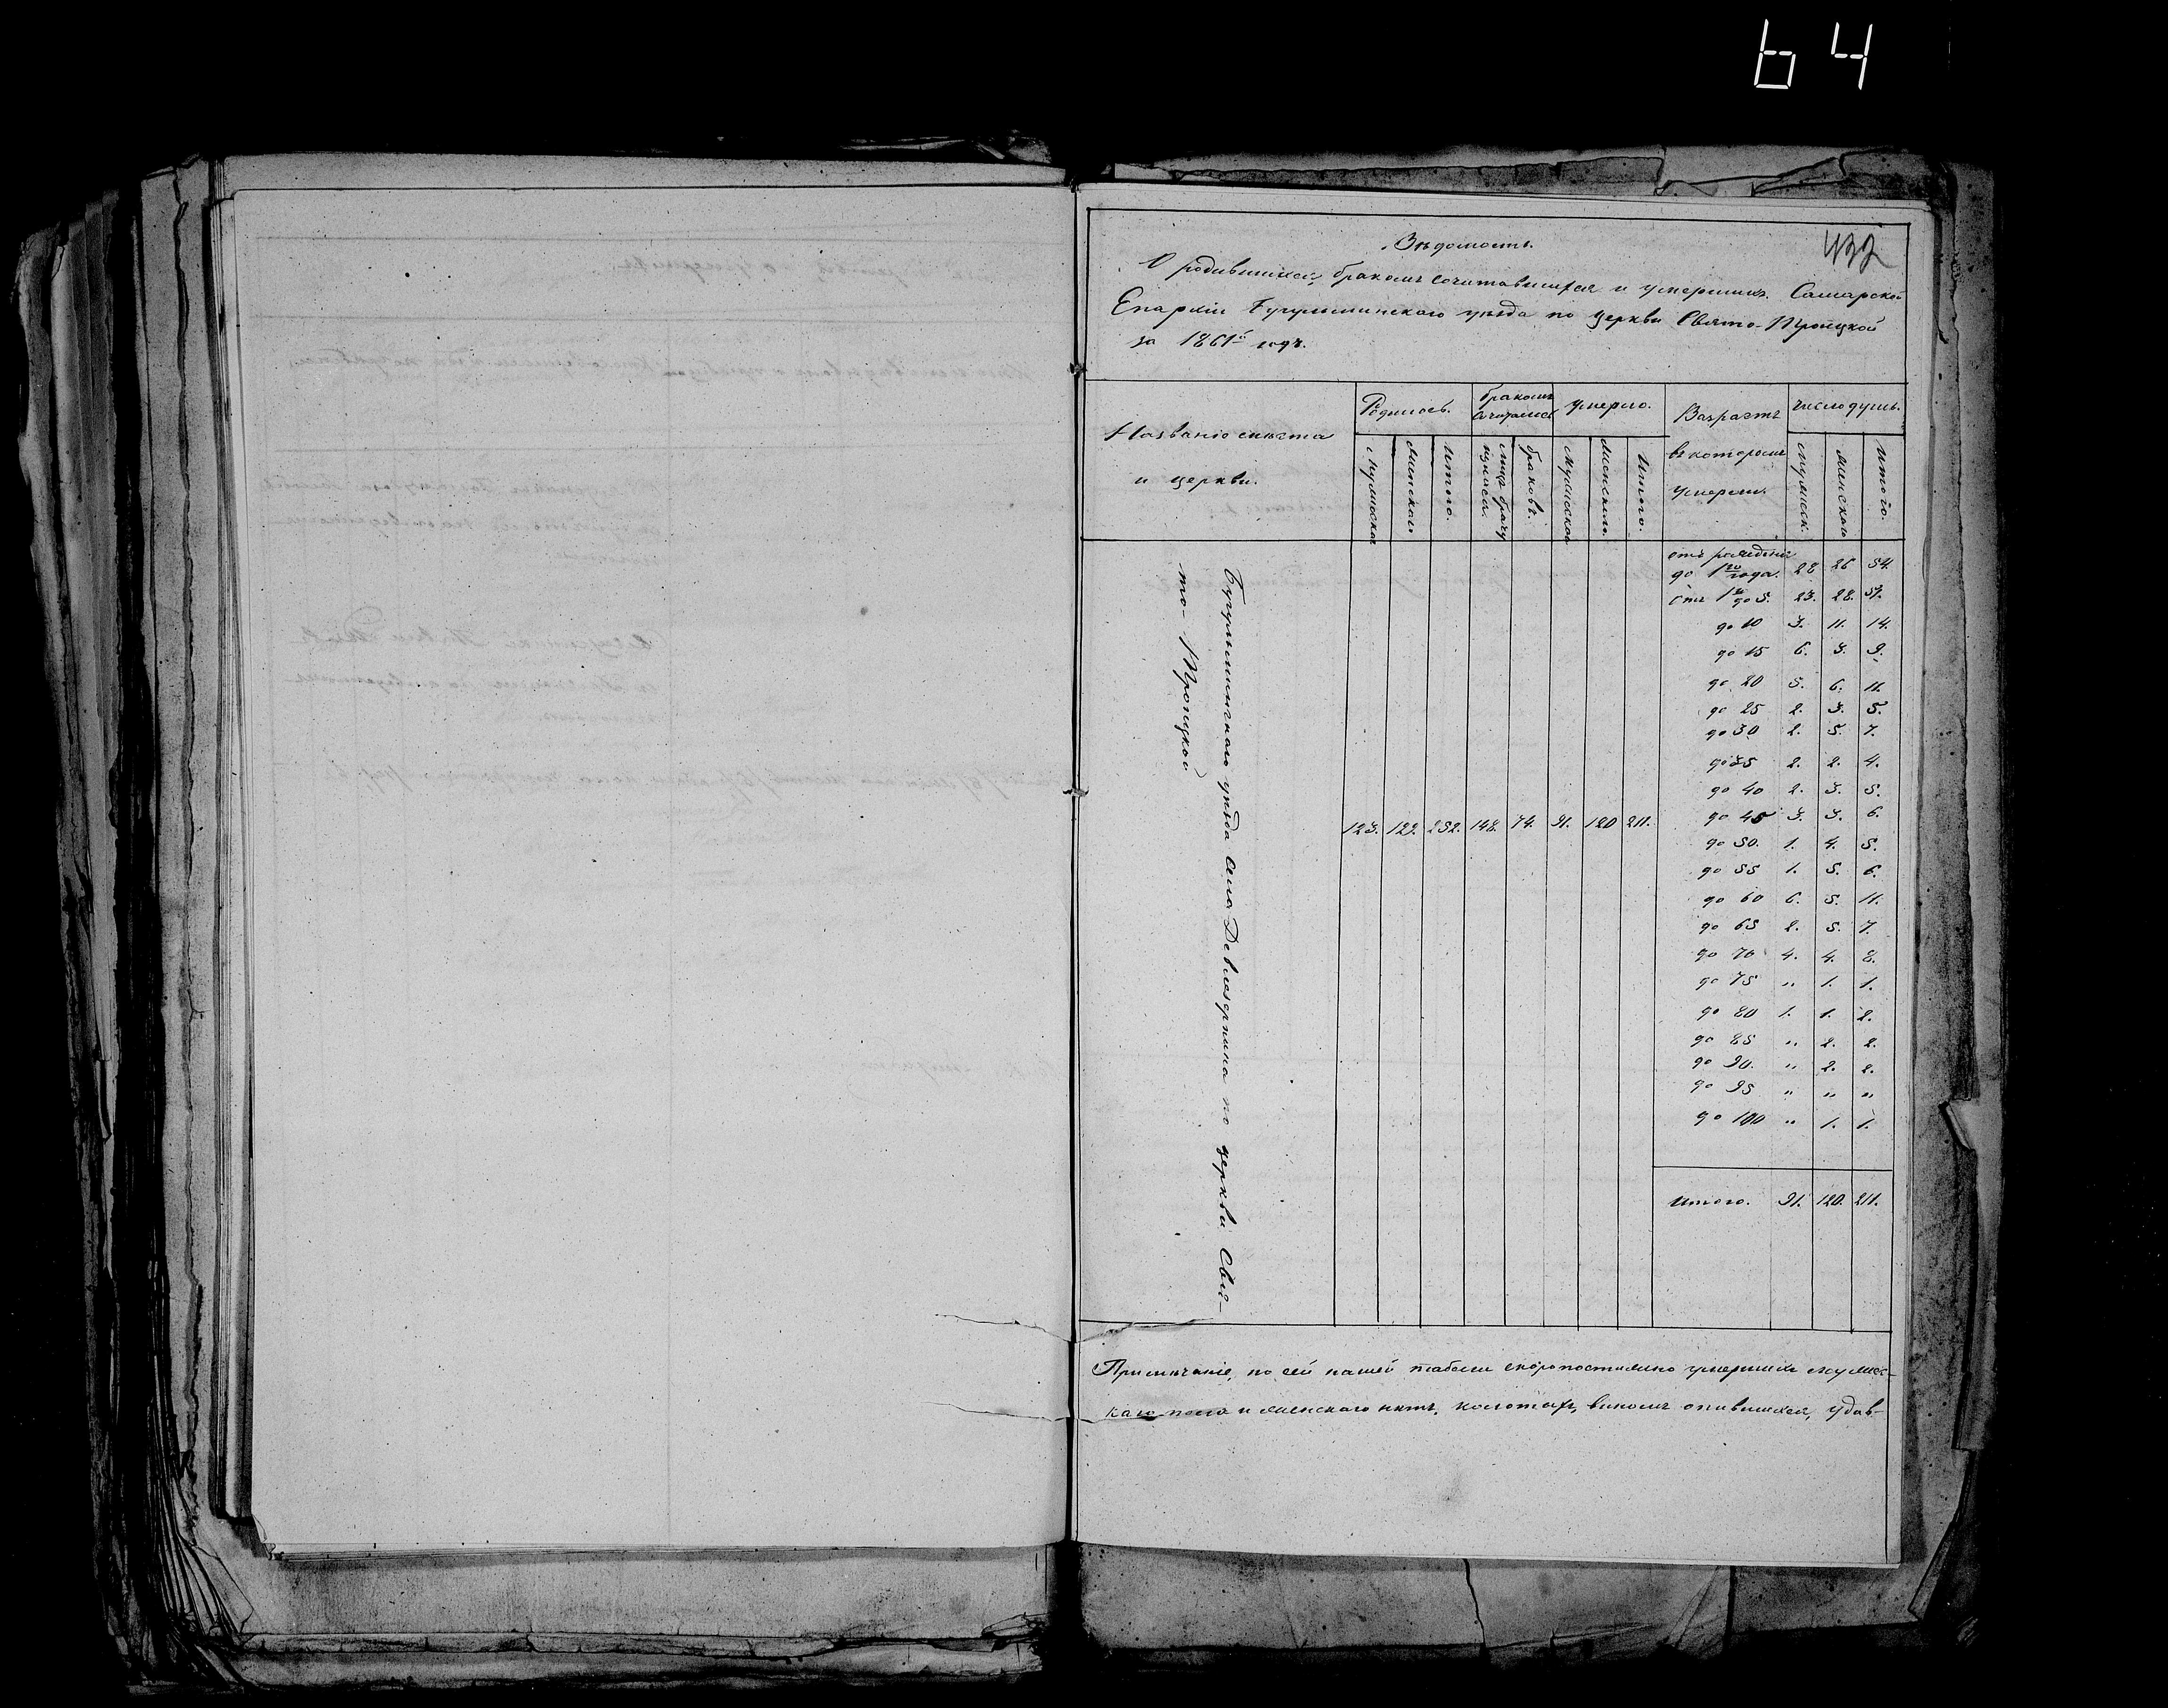 64
432
Вѣдомость.
О родившихся, бракомъ сочитавшихся и умершихъ. Самарской
Епархіи Бугульминскаго уѣзда по церкви Свято-Троицкой
за 1861й годъ.
Названіе мѣста
и церкви.
Родилось.
бракомъ
сочитались
Умерло.
Вазрастъ
въ которомъ
умерли.
число душъ.
мужеска
женскаго
итого.
браковъ.
мужеска
женскаго.
Итого.
мужеск.
женскаго
итого.
Бугульминскаго уѣзда села Девлезеркина по церкви Свя-
то-Троицкой
123. 129. 252. 148. 74. 91. 120 211.
отъ рожденія
до 1го года. 28 26 54.
отъ 1го до 5. 23. 28. 51.
до 10 3. 11. 14.
до 15 6. 3. 9.
до 20 5. 6. 11.
до 25 2. 3. 5.
до 30 2. 5. 7.
до 35 2. 2. 4.
до 40 2. 3. 5.
до 45 3. 3. 6.
до 50. 1. 4. 5.
до 55 1. 5. 6.
до 60 6. 5. 11.
до 65 2. 5. 7.
до 70 4. 4. 8.
до 75 „ 1. 1.
до 80 1. 1. 2.
до 85 „ 2. 2.
до 90. „ 2. 2.
до 95 „ „ „
до 100 „ 1. 1.
Итого. 91. 120. 211.
Примѣчаніе, по сей нашей табели скоропостижно умершихъ мужес-
каго пола и женскаго нѣтъ, виномъ опившихся, удав-